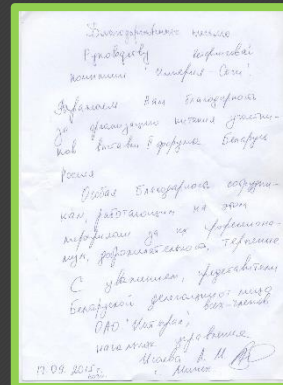 Благодарственное письмо
Руководству
компании "Империя-Сочи".
Выражаем Вам благодарность
за организацию питания участни-
ков выставки и форума Беларусь
Россия
Особая благодарность сотрудни-
кам, работающим на этом
за их профессиона-
лизм, доброжелательность, терпение
С уважением, представители
Белорусской делегации от лица
всех членов
ОАО
начальник управления
г. Минск
17.09.2015г.